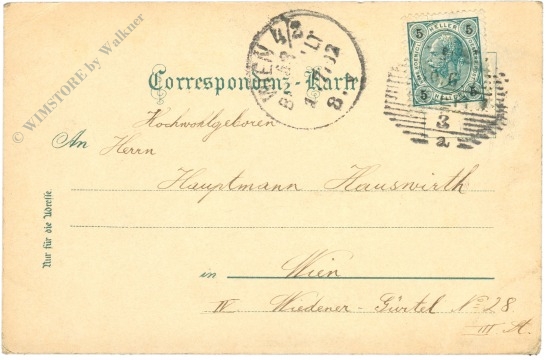 © WIMSTORE by Walkner
WIEN 4/2
8
5 HELLER 5
5 5
3
a
Correspondenz-Karte
Hochwohlgeboren
An Herrn
Hauptmann Hauswirth
in Wien
IV Wiedener-Gürtel No 28
III St.
Nur für die Adresse.